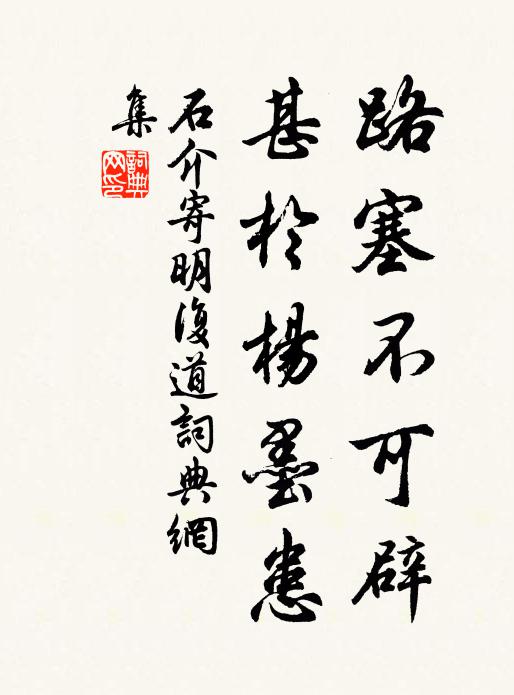 路塞不可辟
甚於楊墨患
石介寄明復道詞典網
集
詞典网印